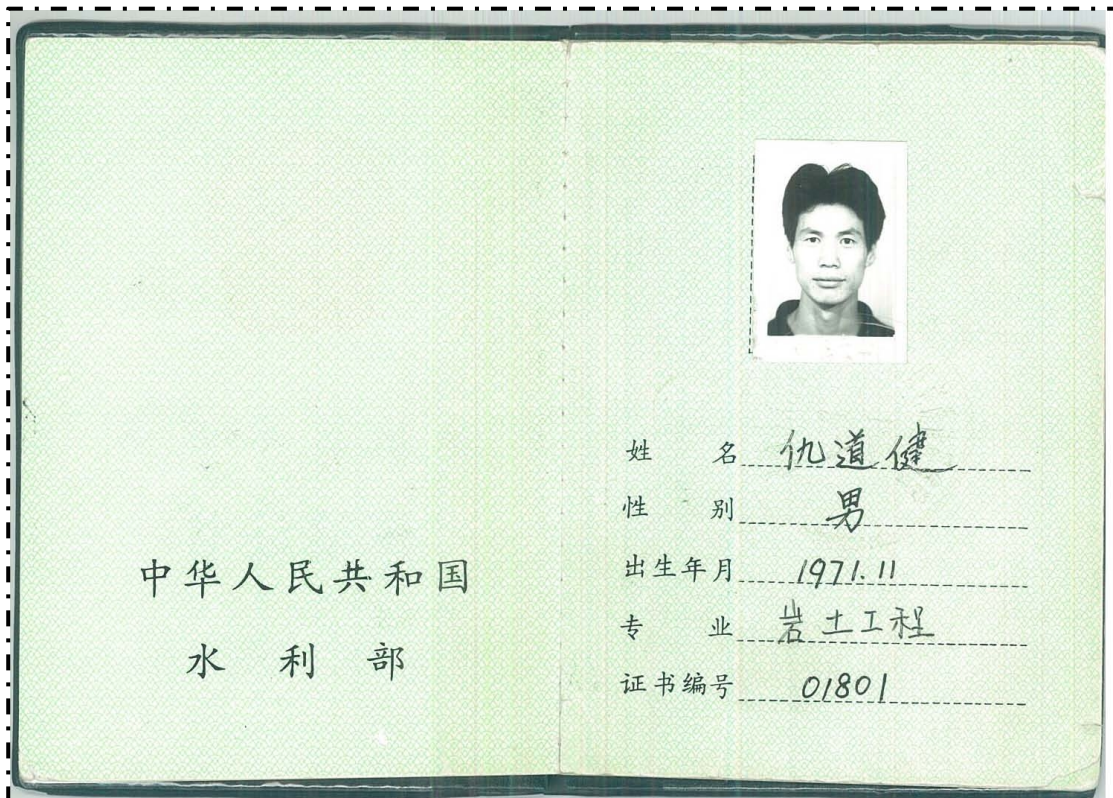 中华人民共和国
水利部
姓名 仇道健
性别 男
出生年月 1971.11
专业 岩土工程
证书编号 01801